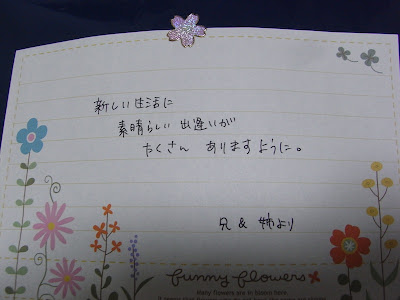 新しい生活に
素晴らしい出逢いが
たくさん ありますように。
兄 & 姉より
funny flowers
Many flowers are in bloom here.